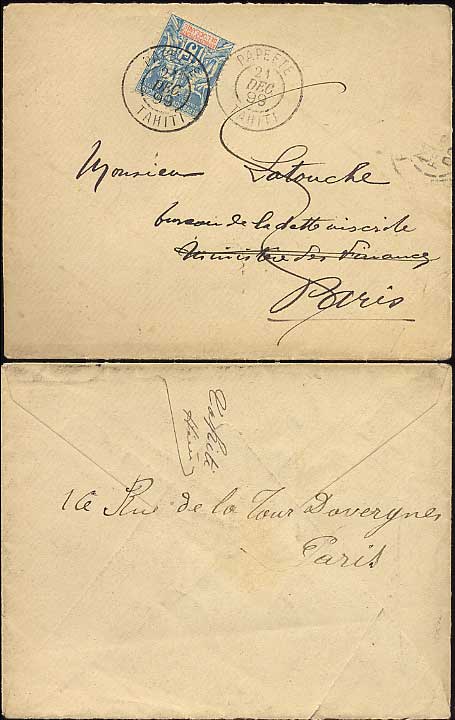 15
PAPEETE
21
DEC
93
TAHITI
PAPEETE
21
DEC
93
TAHITI
Monsieur Latouche
bureau de la dette inscrite
Ministère des Finances
Paris
16 Rue de la Tour Dovergnes
Paris